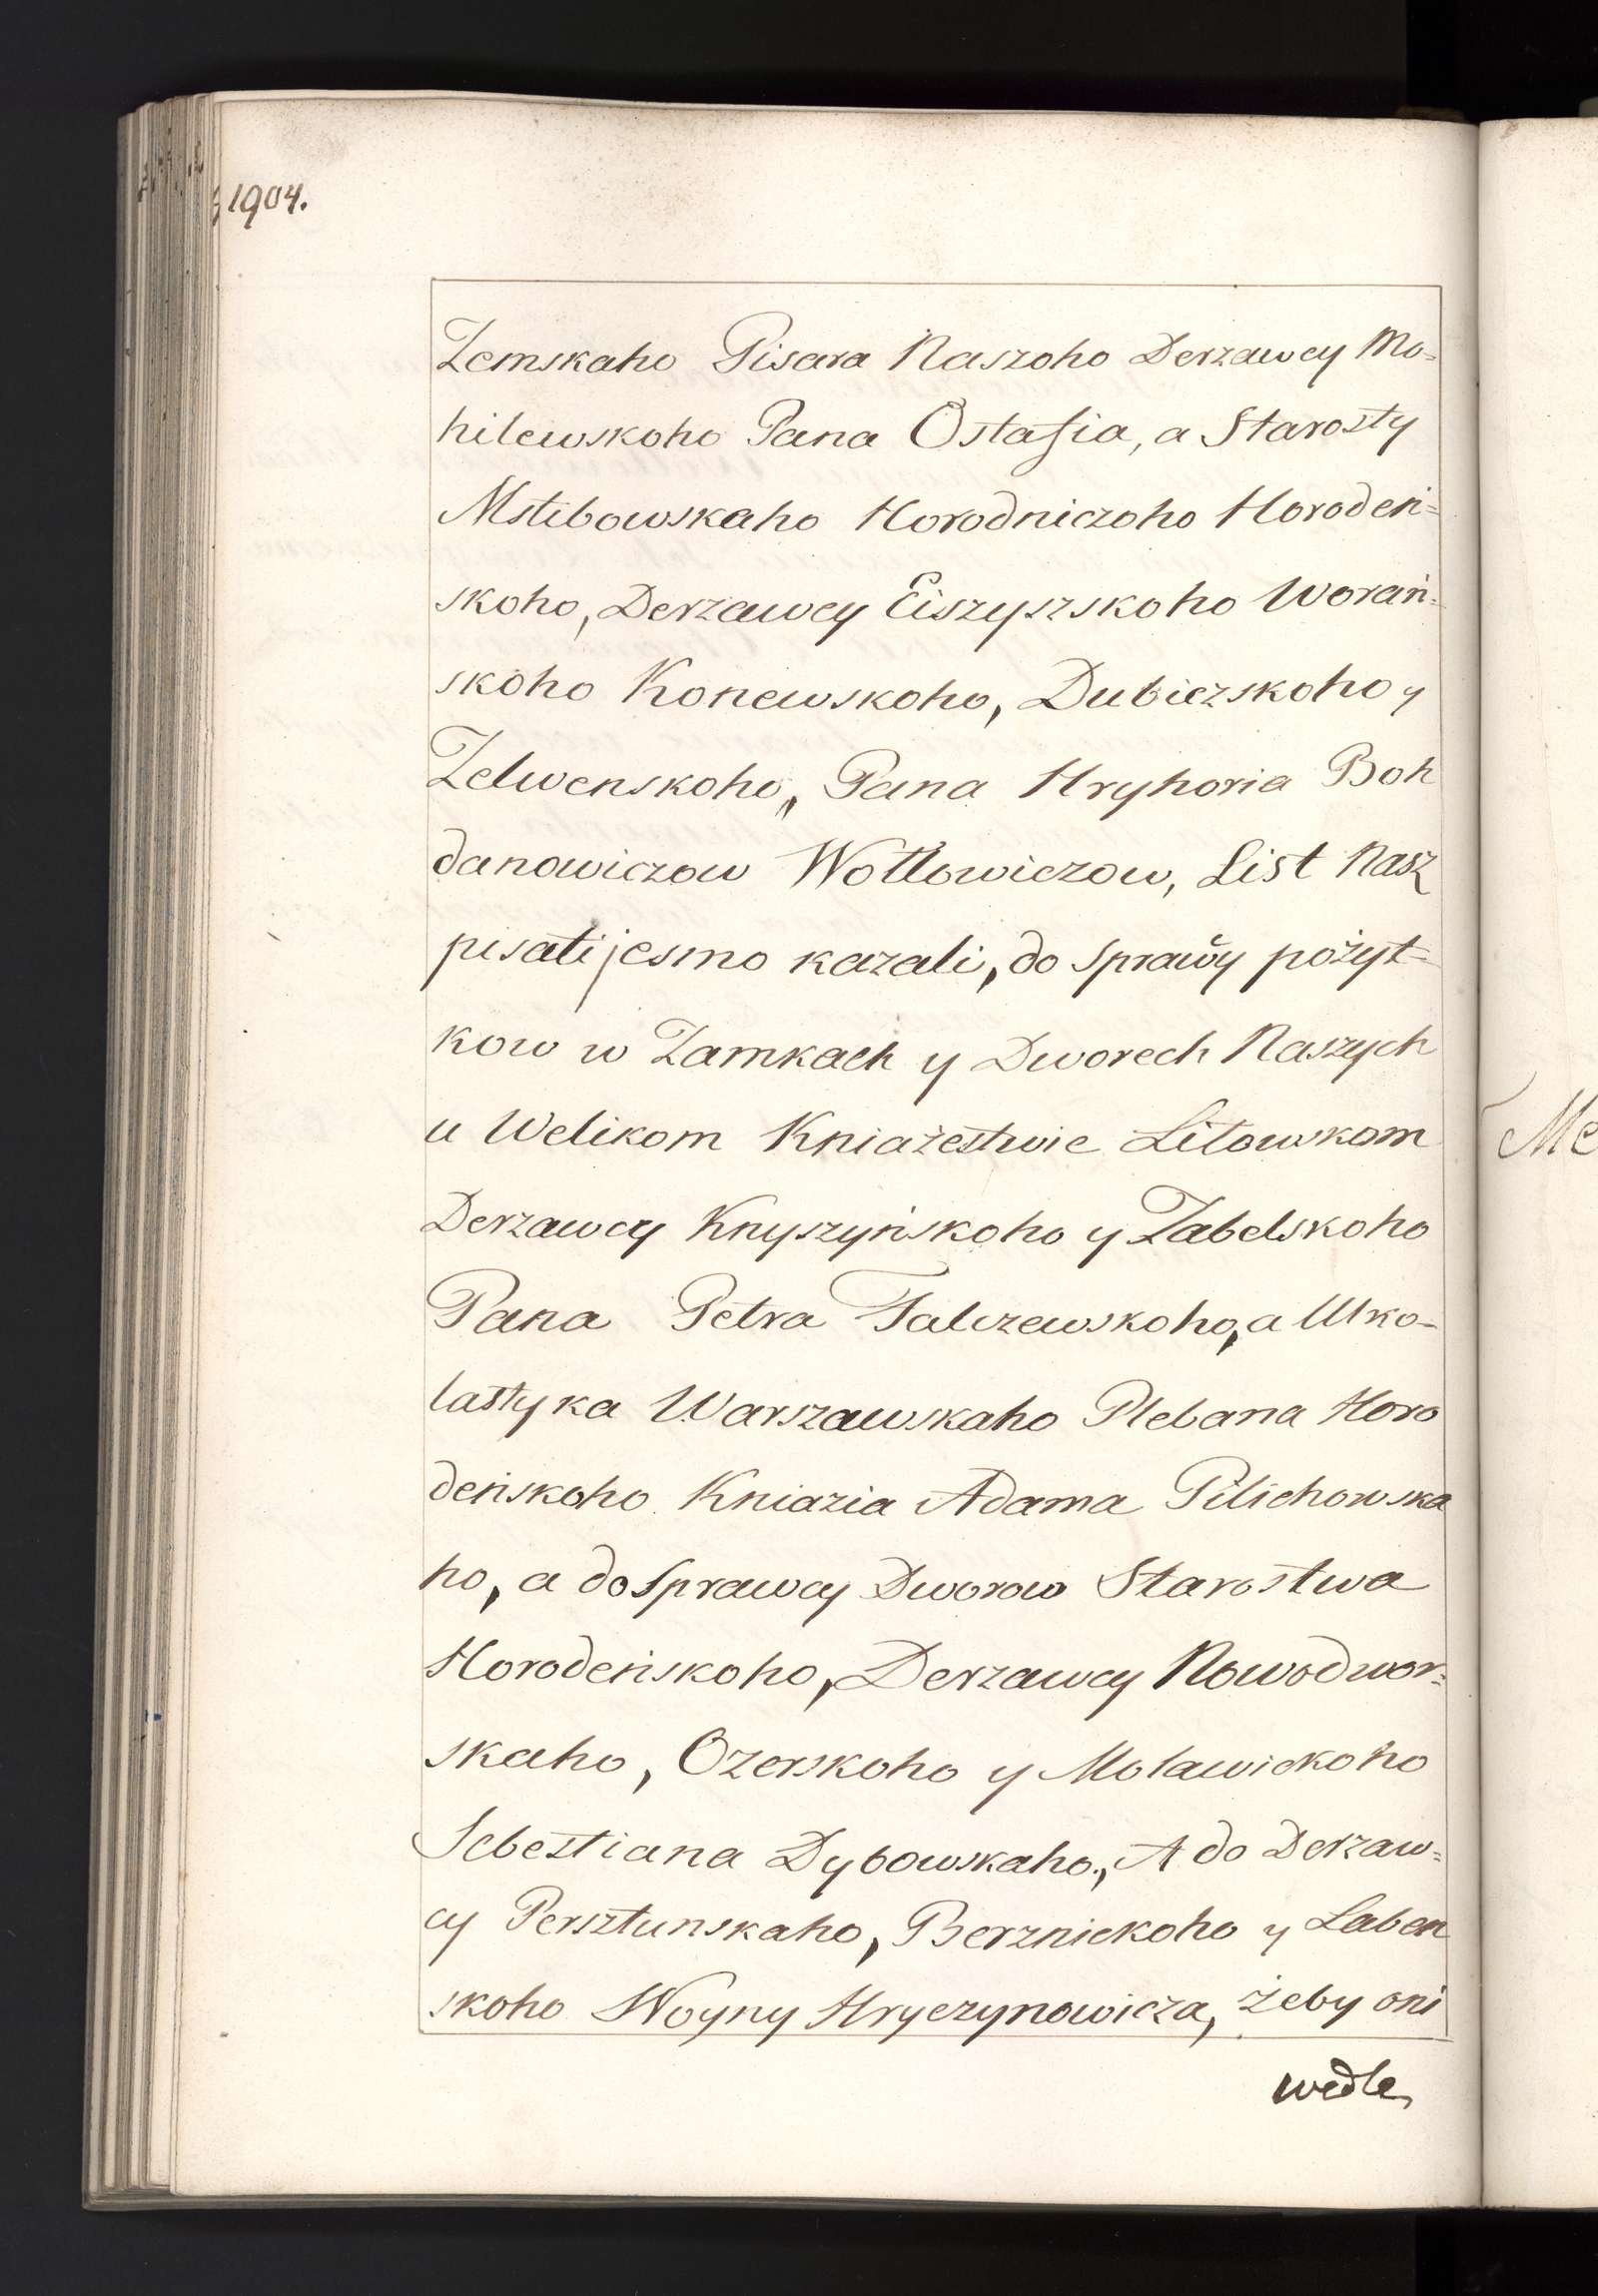 1904.
Zemskaho Pisara Naszoho Derzawcy Mo=
hilewskoho Pana Ostafia, a Starosty
Mstibowskaho Horodniczoho Horodeń=
skoho, Derzawcy Eiszyszskoho Worań=
skoho Konewskoho, Dubiczskoho y
Zelwenskoho, Pana Hryhoria Boh
danowiczow Wołłowiczow, List Nasz
pisati jesmo kazali, do sprawy pożyt=
kow w Zamkach y Dworech Naszych
u Welikom Kniażestwie Litowskom
Derzawcy Knyszyńskoho y Zabelskoho
Pana Petra Falczewskoho, a Uko-
lastyka Warszawskaho Plebana Horo
deńskoho Kniazia Adama Pilichowska
ho, a do sprawcy Dworow Starostwa
Horodeńskoho, Derzawcy Nowodwor=
skaho, Ozerskoho y Molawickoho
Sebestiana Dybowskaho, A do Derzaw=
cy Persztunskaho, Berznickoho y Laben
skoho Woyny Hryczynowicza, żeby oni
wedle
Me